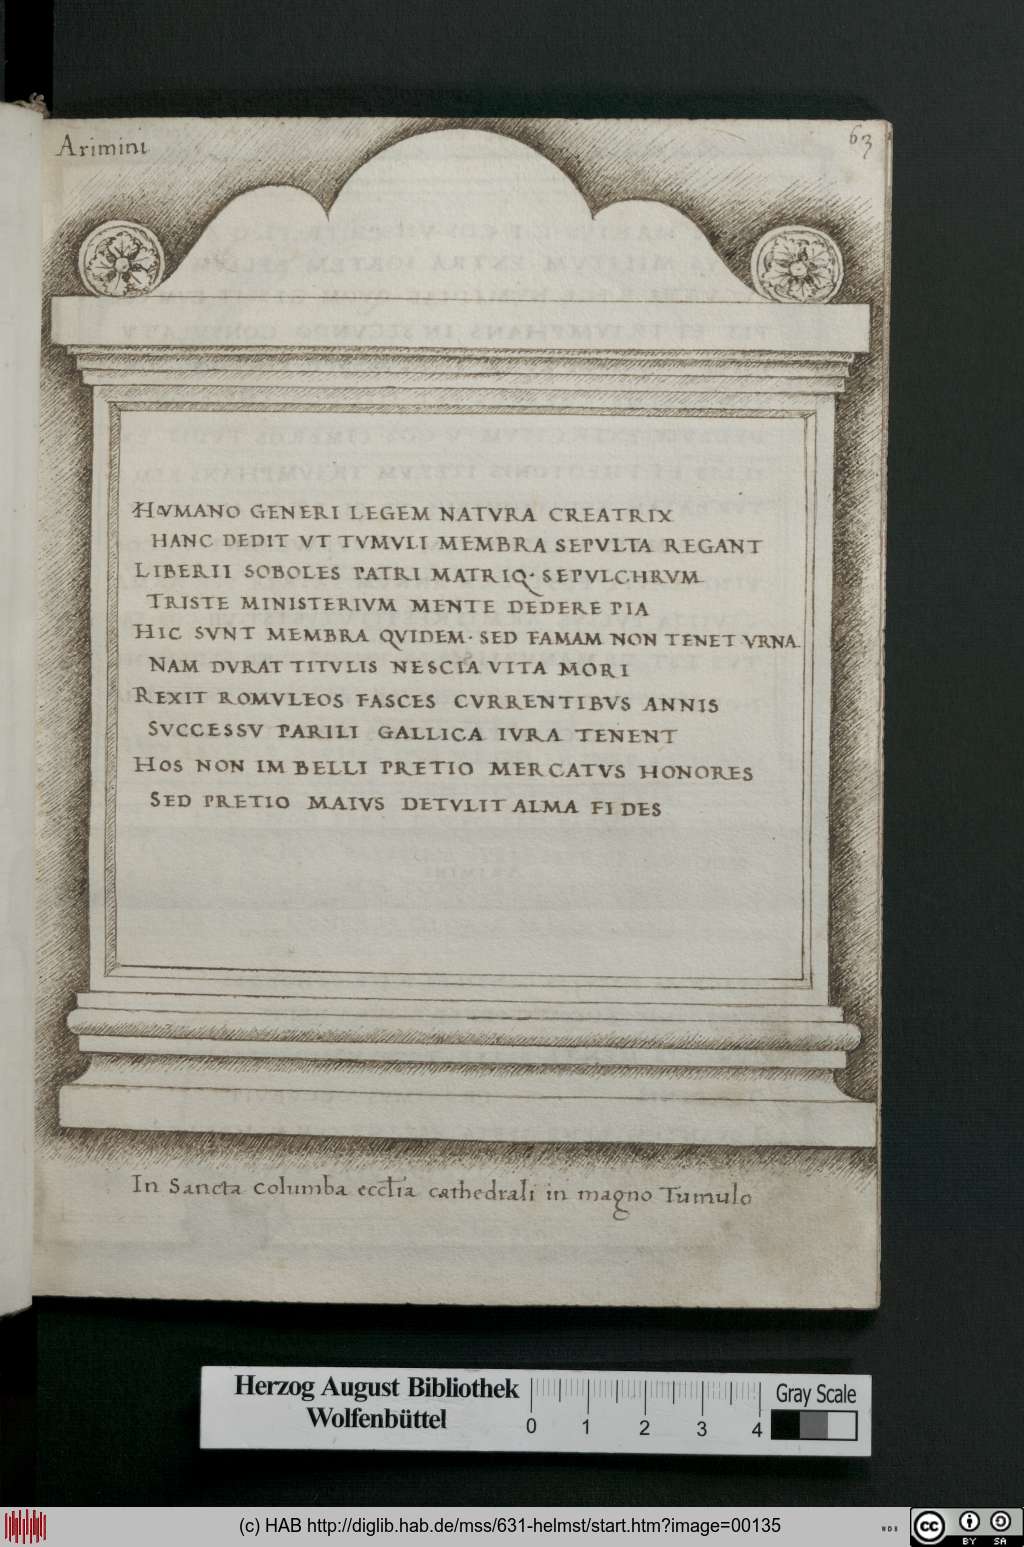 Arimini
63
HVMANO GENERI LEGEM NATVRA CREATRIX
HANC DEDIT VT TVMVLI MEMBRA SEPVLTA REGANT
LIBERII SOBOLES PATRI MATRIQ· SEPVLCHRVM
TRISTE MINISTERIVM MENTE DEDERE PIA
HIC SVNT MEMBRA QVIDEM· SED FAMAM NON TENET VRNA
NAM DVRAT TITVLIS NESCIA VITA MORI
REXIT ROMVLEOS FASCES CVRRENTIBVS ANNIS
SVCCESSV PARILI GALLICA IVRA TENENT
HOS NON IMBELLI PRETIO MERCATVS HONORES
SED PRETIO MAIVS DETVLIT ALMA FIDES
In Sancta columba ecctia cathedrali in magno Tumulo
Herzog August Bibliothek
Wolfenbüttel
0 1 2 3 4
Gray Scale
(c) HAB http://diglib.hab.de/mss/631-helmst/start.htm?image=00135
WDB
cc BY SA